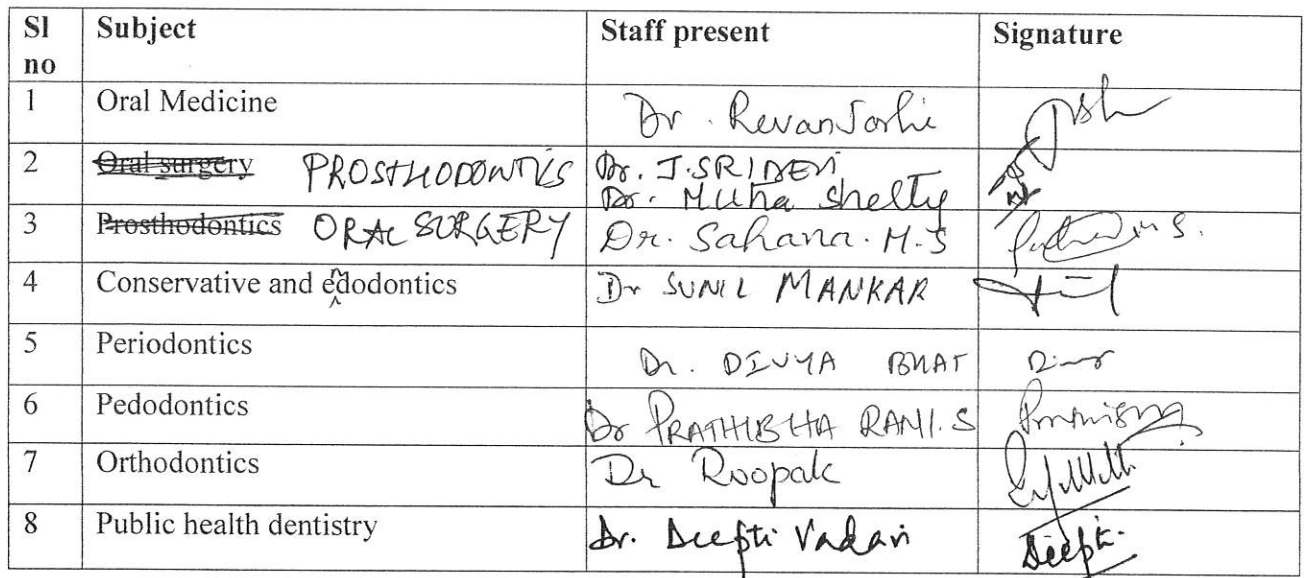 Sl no Subject Staff present Signature
1 Oral Medicine Dr. Revan Joshi
2 Oral surgery PROSTHODONTICS Dr. J. SRIDEVI
Dr. Muha Shetty
3 Prosthodontics ORAL SURGERY Dr. Sahana. M.S
4 Conservative and endodontics Dr SUNIL MANKAR
5 Periodontics Dr. DIVYA BHAT
6 Pedodontics Dr PRATHIBHA RANI. S
7 Orthodontics Dr Roopak
8 Public health dentistry Dr. Deepti Vadavi Deepti